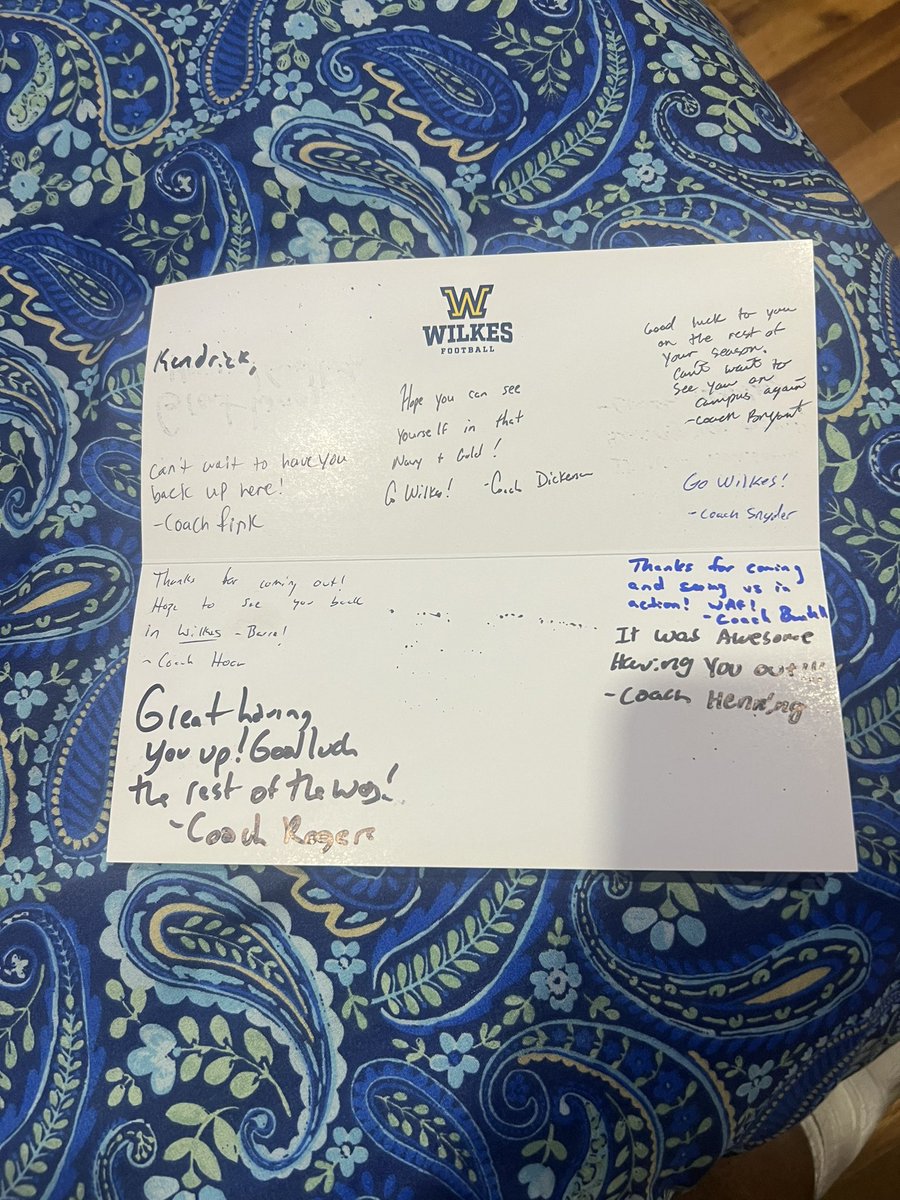 W
WILKES
FOOTBALL
Kendrick,
Can't wait to have you
back up here!
-Coach Fink
Hope you can see
yourself in that
Navy + Gold!
Go Wilkes! -Coach Dickerson
Good luck to you
on the rest of
your season.
Can't wait to
see you on
campus again
-Coach Bryant
Go Wilkes!
-Coach Snyder
Thanks for coming out!
Hope to see you back
in Wilkes-Barre!
-Coach
Great having
you up! Good luck
the rest of the way!
-Coach Rogers
Thanks for coming
and seeing us in
action!
-Coach
It was Awesome
Having You out!!!
-Coach Henning